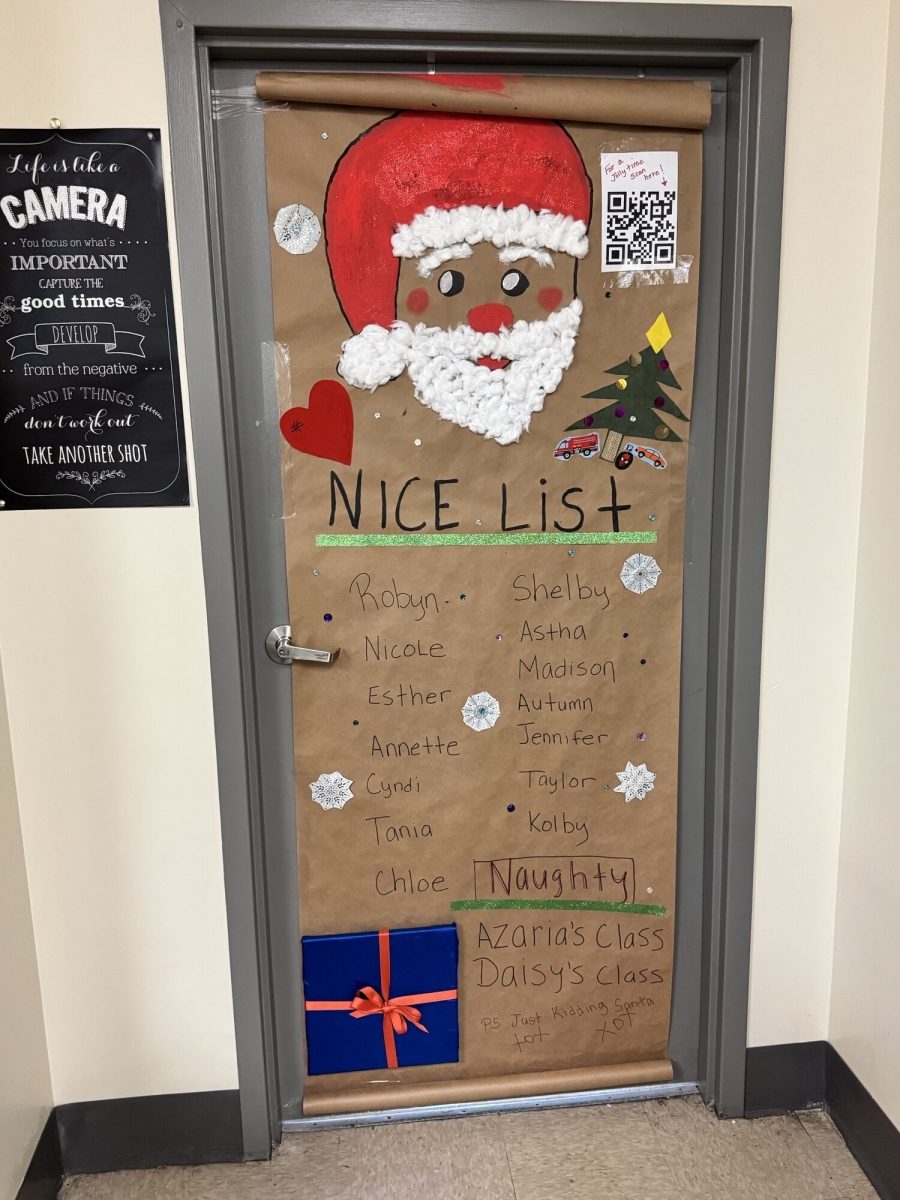 Life is like a
CAMERA
You focus on what's
IMPORTANT
CAPTURE THE
good times
DEVELOP
from the negative
AND IF THINGS
don't work out
TAKE ANOTHER SHOT
For a
Jolly time
Scan
here!
NICE LIST
Robyn
Nicole
Esther
Annette
Cyndi
Tania
Chloe
Shelby
Astha
Madison
Autumn
Jennifer
Taylor
Kolby
Naughty
Azaria's Class
Daisy's Class
PS. Just Kidding Santa